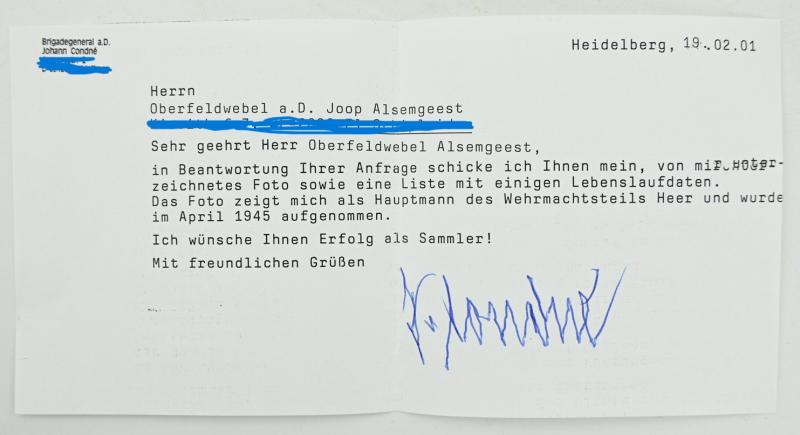 Brigadegeneral a.D.
Johann Condné
Heidelberg, 19.02.01
Herrn
Oberfeldwebel a.D. Joop Alsemgeest
Sehr geehrt Herr Oberfeldwebel Alsemgeest,
in Beantwortung Ihrer Anfrage schicke ich Ihnen mein, von mir unter-
zeichnetes Foto sowie eine Liste mit einigen Lebenslaufdaten.
Das Foto zeigt mich als Hauptmann des Wehrmachtsteils Heer und wurde
im April 1945 aufgenommen.
Ich wünsche Ihnen Erfolg als Sammler!
Mit freundlichen Grüßen